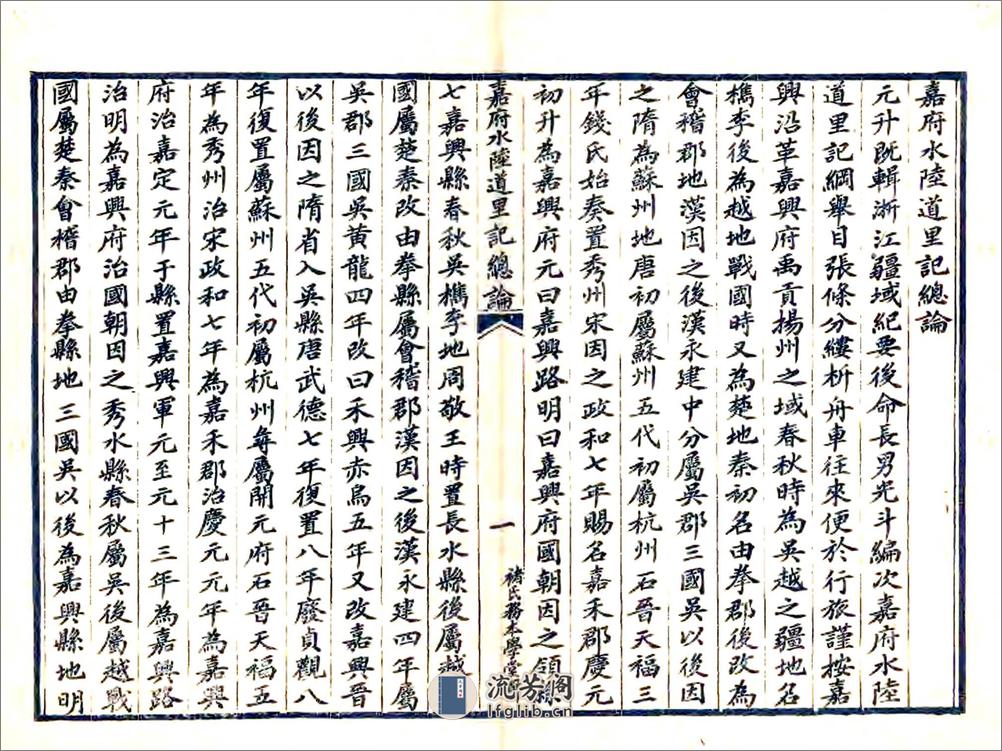 嘉府水陸道里記總論
元升既輯浙江疆域紀要後命長男光斗編次嘉府水陸
道里記綱舉目張條分縷析舟車往來便於行旅謹按嘉
興沿革嘉興府禹貢揚州之域春秋時為吳越之疆地名
檇李後為越地戰國時又為楚地秦初名由拳郡後改為
會稽郡地漢因之後漢永建中分屬吳郡三國吳以後因
之隋為蘇州地唐初屬蘇州五代初屬杭州石晉天福三
年錢氏始奏置秀州宋因之政和七年賜名嘉禾郡慶元
初升為嘉興府元曰嘉興路明曰嘉興府國朝因之領縣
嘉府水陸道里記總論
一
褚氏務本學堂
七嘉興縣春秋吳檇李地周敬王時置長水縣後屬越戰
國屬楚秦改由拳縣屬會稽郡漢因之後漢永建四年屬
吳郡三國吳黃龍四年改曰禾興赤烏五年又改嘉興晉
以後因之隋省入吳縣唐武德七年復置八年廢貞觀八
年復置屬蘇州五代初屬杭州尋屬開元府石晉天福五
年為秀州治宋政和七年為嘉禾郡治慶元元年為嘉興
府治嘉定元年于縣置嘉興軍元至元十三年為嘉興路
治明為嘉興府治國朝因之秀水縣春秋屬吳後屬越戰
國屬楚秦會稽郡由拳縣地三國吳以後為嘉興縣地明
流芳閣
lfglib.cn